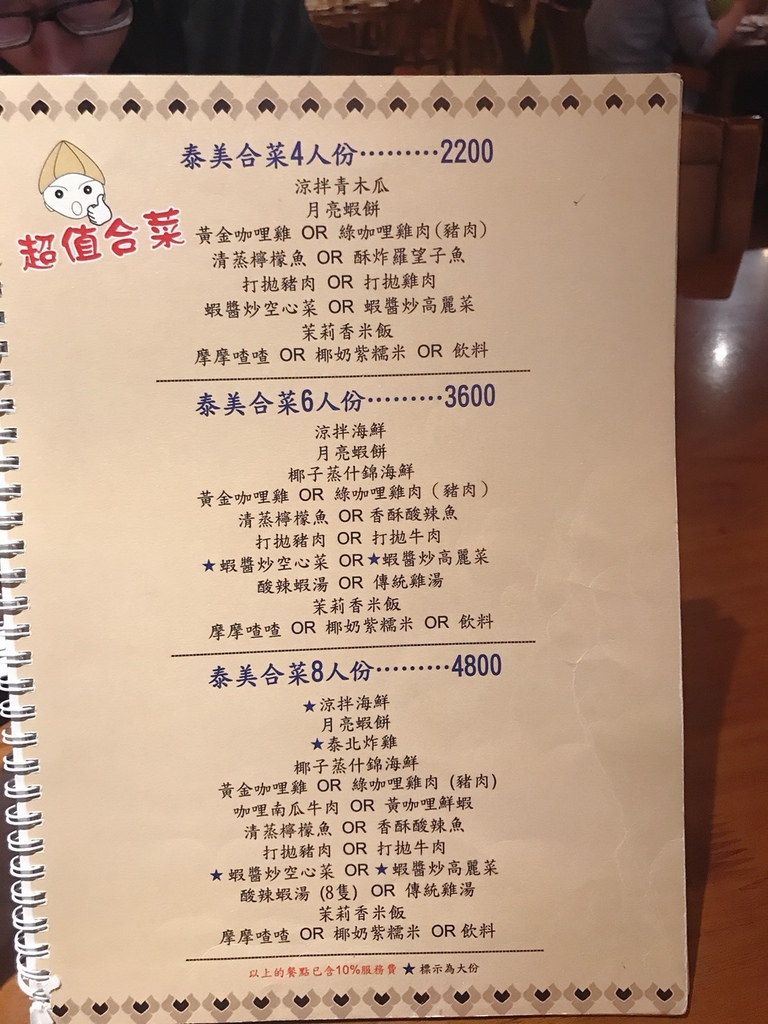 超值合菜
泰美合菜4人份·········2200
涼拌青木瓜
月亮蝦餅
黃金咖哩雞 OR 綠咖哩雞肉(豬肉)
清蒸檸檬魚 OR 酥炸羅望子魚
打拋豬肉 OR 打拋雞肉
蝦醬炒空心菜 OR 蝦醬炒高麗菜
茉莉香米飯
摩摩喳喳 OR 椰奶紫糯米 OR 飲料
泰美合菜6人份·········3600
涼拌海鮮
月亮蝦餅
椰子蒸什錦海鮮
黃金咖哩雞 OR 綠咖哩雞肉(豬肉)
清蒸檸檬魚 OR 香酥酸辣魚
打拋豬肉 OR 打拋牛肉
★蝦醬炒空心菜 OR ★蝦醬炒高麗菜
酸辣蝦湯 OR 傳統雞湯
茉莉香米飯
摩摩喳喳 OR 椰奶紫糯米 OR 飲料
泰美合菜8人份·········4800
★涼拌海鮮
月亮蝦餅
★泰北炸雞
椰子蒸什錦海鮮
黃金咖哩雞 OR 綠咖哩雞肉 (豬肉)
咖哩南瓜牛肉 OR 黃咖哩鮮蝦
清蒸檸檬魚 OR 香酥酸辣魚
打拋豬肉 OR 打拋牛肉
★蝦醬炒空心菜 OR ★蝦醬炒高麗菜
酸辣蝦湯 (8隻) OR 傳統雞湯
茉莉香米飯
摩摩喳喳 OR 椰奶紫糯米 OR 飲料
以上的餐點已含10%服務費 ★標示為大份